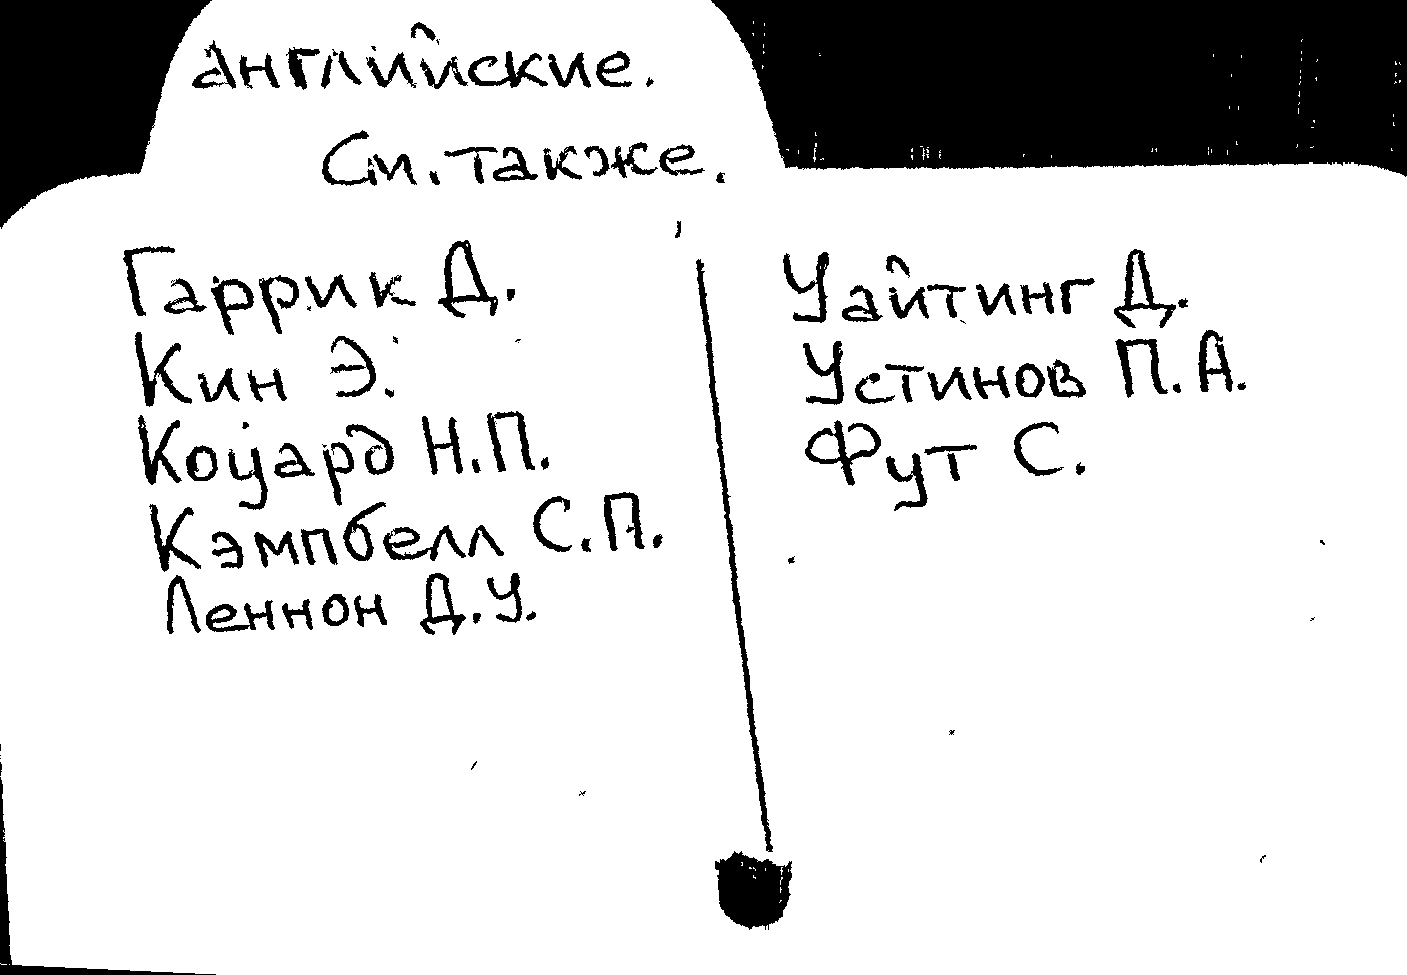 английские.
См. также.
Гаррик Д.
Кин Э.
Коуард Н.П.
Кэмпбелл С.П.
Леннон Д.У.
Уайтинг Д.
Устинов П.А.
Фут С.